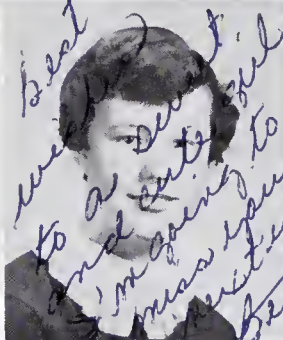 Best
wishes
to a sweet
and cute girl
I'm going to
miss you